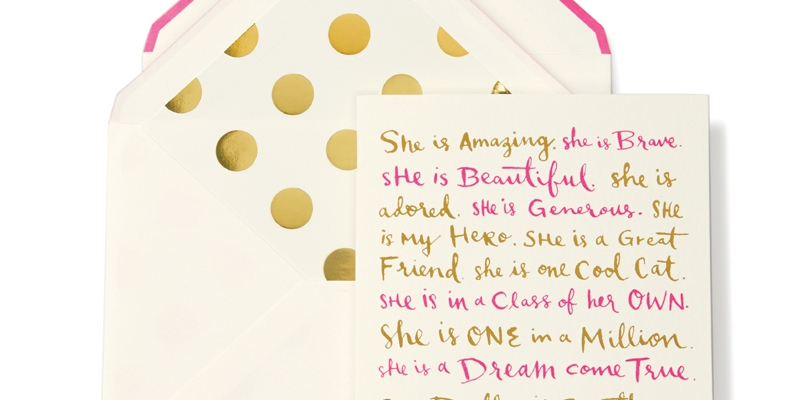 She is Amazing. she is Brave.
sHe is Beautiful. she is
adored. sHe is Generous. SHe
is my Hero. SHe is a Great
Friend. she is one Cool Cat.
sHe is in a Class of her OWN.
She is ONE in a Million.
sHe is a Dream come True.